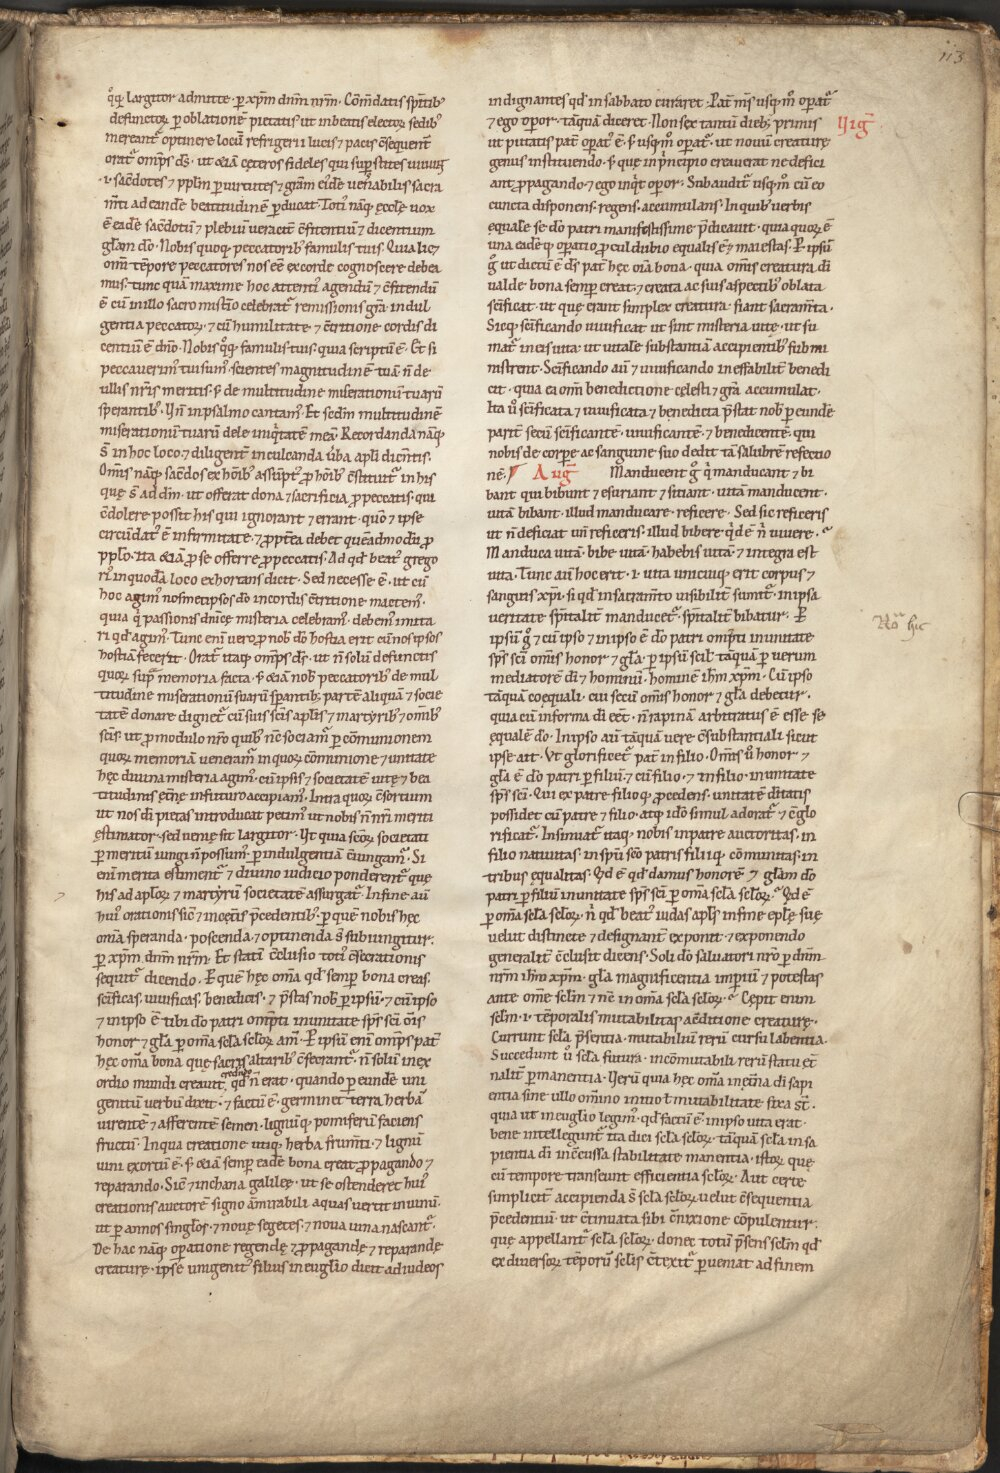 113
q̊q; largitor admitte · ꝑ xp̄m dnm̄ nrm̄. Cōm̄datis sp̄ritib;
defunctoꝝ ꝑ oblationē pietatis ut in beatis electoꝝ sedib;
mereant᷑ optinere locū refrigerii lucis ⁊ pacis c̄sequent᷑
orat᷑ omp̄s d̄s · ut &iā cęteros fideles qui suꝑstites uiuu
.i. sac̄dotes ⁊ pplm̄ ꝑ uirtutes ⁊ grām ei᷒dē uen̄abilis sacra
m̄ti ad eandē beatitudinē ꝑducat. Toti᷒ nāq; ęcclę uox
ē eadē sac̄dotū ⁊ plebiū ueracit̄ c̄fitentiū ⁊ dicentium
glām dō · Nobis quoq; peccatorib; famulis tuis. Quia lic&
om̄i tēpore peccatores nos eē ex corde cognoscere debea
mus · tunc quā maxime hoc attenti᷒ agendū ⁊ c̄fitendū
ē cū in illo sacro mist̄io celebrat᷑ remissionis grā · indul
gentia peccatoꝝ · ⁊ cū humilitate ⁊ c̄tritione cordis di
centiū ē dn̄o · Nobis q̊q; famulis tuis · quia scriptū ē · Et si
peccauerim᷒ tui sum᷒ · scientes magnitudinē tuā n̄ de
ullis nr̄is meritis · s; de multitudine miserationū tuarū
sperantib; · Vn̄ in psalmo cantam᷒ · Et sedm̄ multitudinē
miserationū tuarū dele iniq̇tatē meā. Recordanda nāq;
s̄ in hoc loco · ⁊ diligent̄ inculcanda ūba apl̄i dic̄ntis.
Om̄is nāq; sac̄dos ex hōib; assūpt᷒ ꝓ hōib; c̄stituit᷑ in his
quę s̄ ad dm̄ · ut offerat dona ⁊ sacrificia ꝓ peccatis · qui
c̄dolere possit his qui ignorant ⁊ errant · qn̄o ⁊ ipse
circūdat᷒ ē infirmitate · ⁊ ꝓpt̄ea debet quēadmodū ꝓ
pplo · ita &iā ꝓ se offerre ꝓ peccatis. Ad qd̄ beat᷒ grego
ri᷒ in quodā loco exhortans dicit · Sed necesse ē · ut cū
hoc agim᷒ nosmetipsos dō in cordis c̄tritione mactem᷒ ·
quia q̇ passionis dn̄icę misteria celebram᷒ · debem᷒ imita
ri qd̄ agim᷒ · Tunc enī uero ꝓ nob̄ dō hostia erit cū nosipsos
hostiā fecerit · Orat᷑ itaq; omp̄s d̄s · ut n̄ solū defunctis
quoꝝ sup̄ memoria facta · s; &iā nob̄ peccatorib; de mul
titudine miserationū suarū sꝑantib; partē aliquā ⁊ socie
tatē donare dignet᷑ cū suis sc̄is apl̄is ⁊ martyrib; ⁊ om̄ib;
sc̄is · ut ꝓ modulo nr̄o quib; nc̄ sociam᷑ ꝑ cōmunionem
quoꝝ memoriā ueneram᷑ · in quoꝝ cōmunione ⁊ unitate
hęc diuina misteria agim᷒ · cū ipsis ⁊ societatē uitę ⁊ bea
titudinis ęt̄nę in futuro accipiam᷒ · Intra quoꝝ c̄sortium
ut nos di pietas introducat petim᷒ · ut nobis n̄ nr̄i meriti
ęstimator · sed uenię sit largitor · Vt quia sc̄oꝝ societati
ꝑ meritū iungi n̄ possum᷒ · ꝑ indulgentiā c̄iungam᷑. Si
enī merita ęstiment᷑ ⁊ diuino iudicio ponderent᷑ quę
his ad aploꝝ ⁊ martyrū societatē assurgat᷑. In fine aū
hui᷒ orationis sic̄ ⁊ in cęt̄is p̄cedentib; · ꝑ quē nobis hęc
om̄ia speranda · poscenda · ⁊ optinenda s̄ subiungitur:
ꝑ xp̄m dnm̄ nrm̄. Et statī c̄clusio toti᷒ c̄secrationis
sequit᷑ dicendo · Ꝑ que hęc om̄ia qd̄ semꝑ bona creas.
sc̄ificas. uiuificas. benedicis · ⁊ p̄stas nob̄ ꝑ ipsū · ⁊ cū ipso
⁊ in ipso ē tibi dō patri omp̄ti in unitate sp̄s sc̄i om̄is
honor ⁊ glā ꝑ om̄ia sc̄la sc̄loꝝ am̄. Ꝑ ipsū enī omp̄s pat̄
hęc om̄ia bona quę sacris altarib; c̄secrant᷑ · n̄ solū in ex
ordio mundi creauit · credim᷒ qd̄ n̄ erat · quando ꝑ eundē uni
genitū uerbū dixit · ⁊ factū ē · germinet terra herbā
uirentē ⁊ afferentē semen · lignūq; pomiferū faciens
fructū · In qua creatione utiq; herba frum̄ti · ⁊ lignū
uini exortū ē · s; &iā semꝑ eadē bona creat ꝓpagando ⁊
reparando. Sic̄ ⁊ in chana galileę · ut se ostenderet hui᷒
creationis auctorē signo āmirabili aquas uertit in uinū ·
ut ꝑ annos singl̄os · ⁊ nouę segetes · ⁊ noua uina nascant᷑.
De hac nāq; oꝑatione regendę ⁊ ꝓpagandę ⁊ reparandę
creaturę · ipse unigenit᷒ filius in euglio dicit ad iudeos
indignantes qd̄ in sabbato curaret · Pat̄ m̄s usq;m̊ oꝑat᷑
⁊ ego oꝑor · tāquā diceret · Non sex tantū dieb; primis
ut putatis pat̄ oꝑat᷒ ē · s; usq;m̊ oꝑat᷑ · ut nouū creaturę
genus instituendo · s; quę in p̄ncipio creauerat ne defici
ant ꝓpagando · ⁊ ego inq̇t oꝑor · Subaudit᷑ usq;m̊ cū eo
cuncta disponens · regens · accumulans. In quib; uerbis
ęquale se dō patri manifestissime p̄dicauit · quia quoꝝ ē
una eadēq; oꝑatio ꝓculdubio equalis ē ⁊ maiestas. Ꝑ ipsū
g̊ ut dictū ē d̄s pat̄ hęc om̄ia bona · quia om̄is creatura di
ualde bona semꝑ creat · ⁊ creata ac suis aspectib; oblata
sc̄ificat · ut quę erant simplex creatura · fiant sacram̄ta ·
Sicq; sc̄ificando uiuificat ut sint misteria uitę · ut su
mat᷑ in eis uita · ut uitale substantiā accipientib; submi
nistrent. Sc̄ificando aū ⁊ uiuificando ineffabilit̄ benedi
cit · quia ea om̄i benedictione cęlesti ⁊ grā accumulat.
Ita ů sc̄ificata ⁊ uiuificata ⁊ benedicta p̄stat nob̄ ꝑ eundē
parit̄ secū sc̄ificantē · uiuificantē · ⁊ benedicentē · qui
nobis de corꝑe ac sanguine suo dedit tā salubrē refectio
nē. Aug᷑ Manducent g̊ q̇ manducant ⁊ bi
bant qui bibunt ⁊ esuriant ⁊ sitiant · uitā manducent ·
uitā bibant · illud manducare · reficere · Sed sic reficeris
ut n̄ deficiat un̄ reficeris · illud bibere q̇d ē n̄ uiuere ·
Manduca uitā · bibe uitā · habebis uitā · ⁊ integra est
uita. Tunc aū hoc erit · i · uita unicuiq; erit corpus ⁊
sanguis xp̄i · si qd̄ in sacram̄to uisibilit̄ sumit᷑ · in ipsa
ueritate sp̄ritalit̄ manducet᷑ · sp̄ritalit̄ bibatur. Ꝑ
ipsū g̊ ⁊ cū ipso ⁊ in ipso ē dō patri omp̄ti in unitate
sp̄s sc̄i om̄is honor ⁊ glā · ꝑ ipsū scil̄ tāquā ꝑ uerum
mediatorē di ⁊ hominū · hominē ih̄m xp̄m. Cū ipso
tāquā coęquali · cui secū om̄is honor ⁊ glā debetur ·
quia cū in forma di eēt · n̄ rapinā arbitratus ē esse se
ęqualē dō. In ipso aū tāquā uere c̄substantiali sicut
ipse ait · Vt glorificet᷑ pat̄ in filio. Om̄is ů honor ⁊
glā ē dō patri ꝑ filiū · ⁊ cū filio · ⁊ in filio · in unitate
sp̄s sc̄i. Qui ex patre filioq; ꝓcedens · unitatē dt̄atis
possidet cū patre ⁊ filio · atq; idō simul adorat᷑ ⁊ c̄glo
rificat᷑. Insinuat᷑ itaq; nobis in patre auctoritas · in
filio natiuitas · in sp̄u sc̄o patris filiiq; cōmunitas · in
tribus ęqualitas. Qd̄ ē qd̄ damus honorē ⁊ glām dō
patri ꝑ filiū in unitate sp̄s sc̄i ꝑ om̄ia sc̄la sc̄loꝝ. Qd̄ ē
ꝑ om̄ia sc̄la sc̄loꝝ · n̄ qd̄ beat᷒ iudas apl̄s in fine eplę suę
uelut distincte ⁊ designant̄ exponit · ⁊ exponendo
generalit̄ c̄clusit dicens. Soli dō saluatori nr̄o ꝑ dnm̄
nrm̄ ih̄m xp̄m · glā magnificentia imperiū ⁊ potestas
ante om̄e sc̄lm ⁊ nc̄ in om̄ia sc̄la sc̄loꝝ. Cępit enim
sc̄lm · i · tēporalis mutabilitas a c̄ditione creaturę ·
Currunt sc̄la p̄sentia · mutabiliū rerū cursu labentia.
Succedunt ů sc̄la futura · incōmutabili rerū statu ęt̄
nalit̄ ꝑmanentia. Verū quia hęc om̄ia in ęt̄na di sapi
entia sine ullo om̄ino initio ł mutabilitate fixa st̄ ·
quia ut in euglio legim᷒ · qd̄ factū ē · in ipso uita erat ·
bene intellegunt᷑ ita dici sc̄la sc̄loꝝ · tāquā sc̄la in sa
pientia di inc̄cussa stabilitate manentia · istoꝝ quę
cū tempore transeunt efficientia sc̄loꝝ. Aut certe
simplicit̄ accipienda s̄ sc̄la sc̄loꝝ uelut c̄sequentia
p̄cedentiū · ut c̄tinuata sibi c̄nixione cōpulentur:
quę appellant᷑ sc̄la sc̄loꝝ · donec totū p̄sens sc̄lm qd̄
ex diuersoꝝ tēporū sc̄lis c̄texit᷑ ꝑueniat ad finem
Vig᷑
Nōᵃ hic